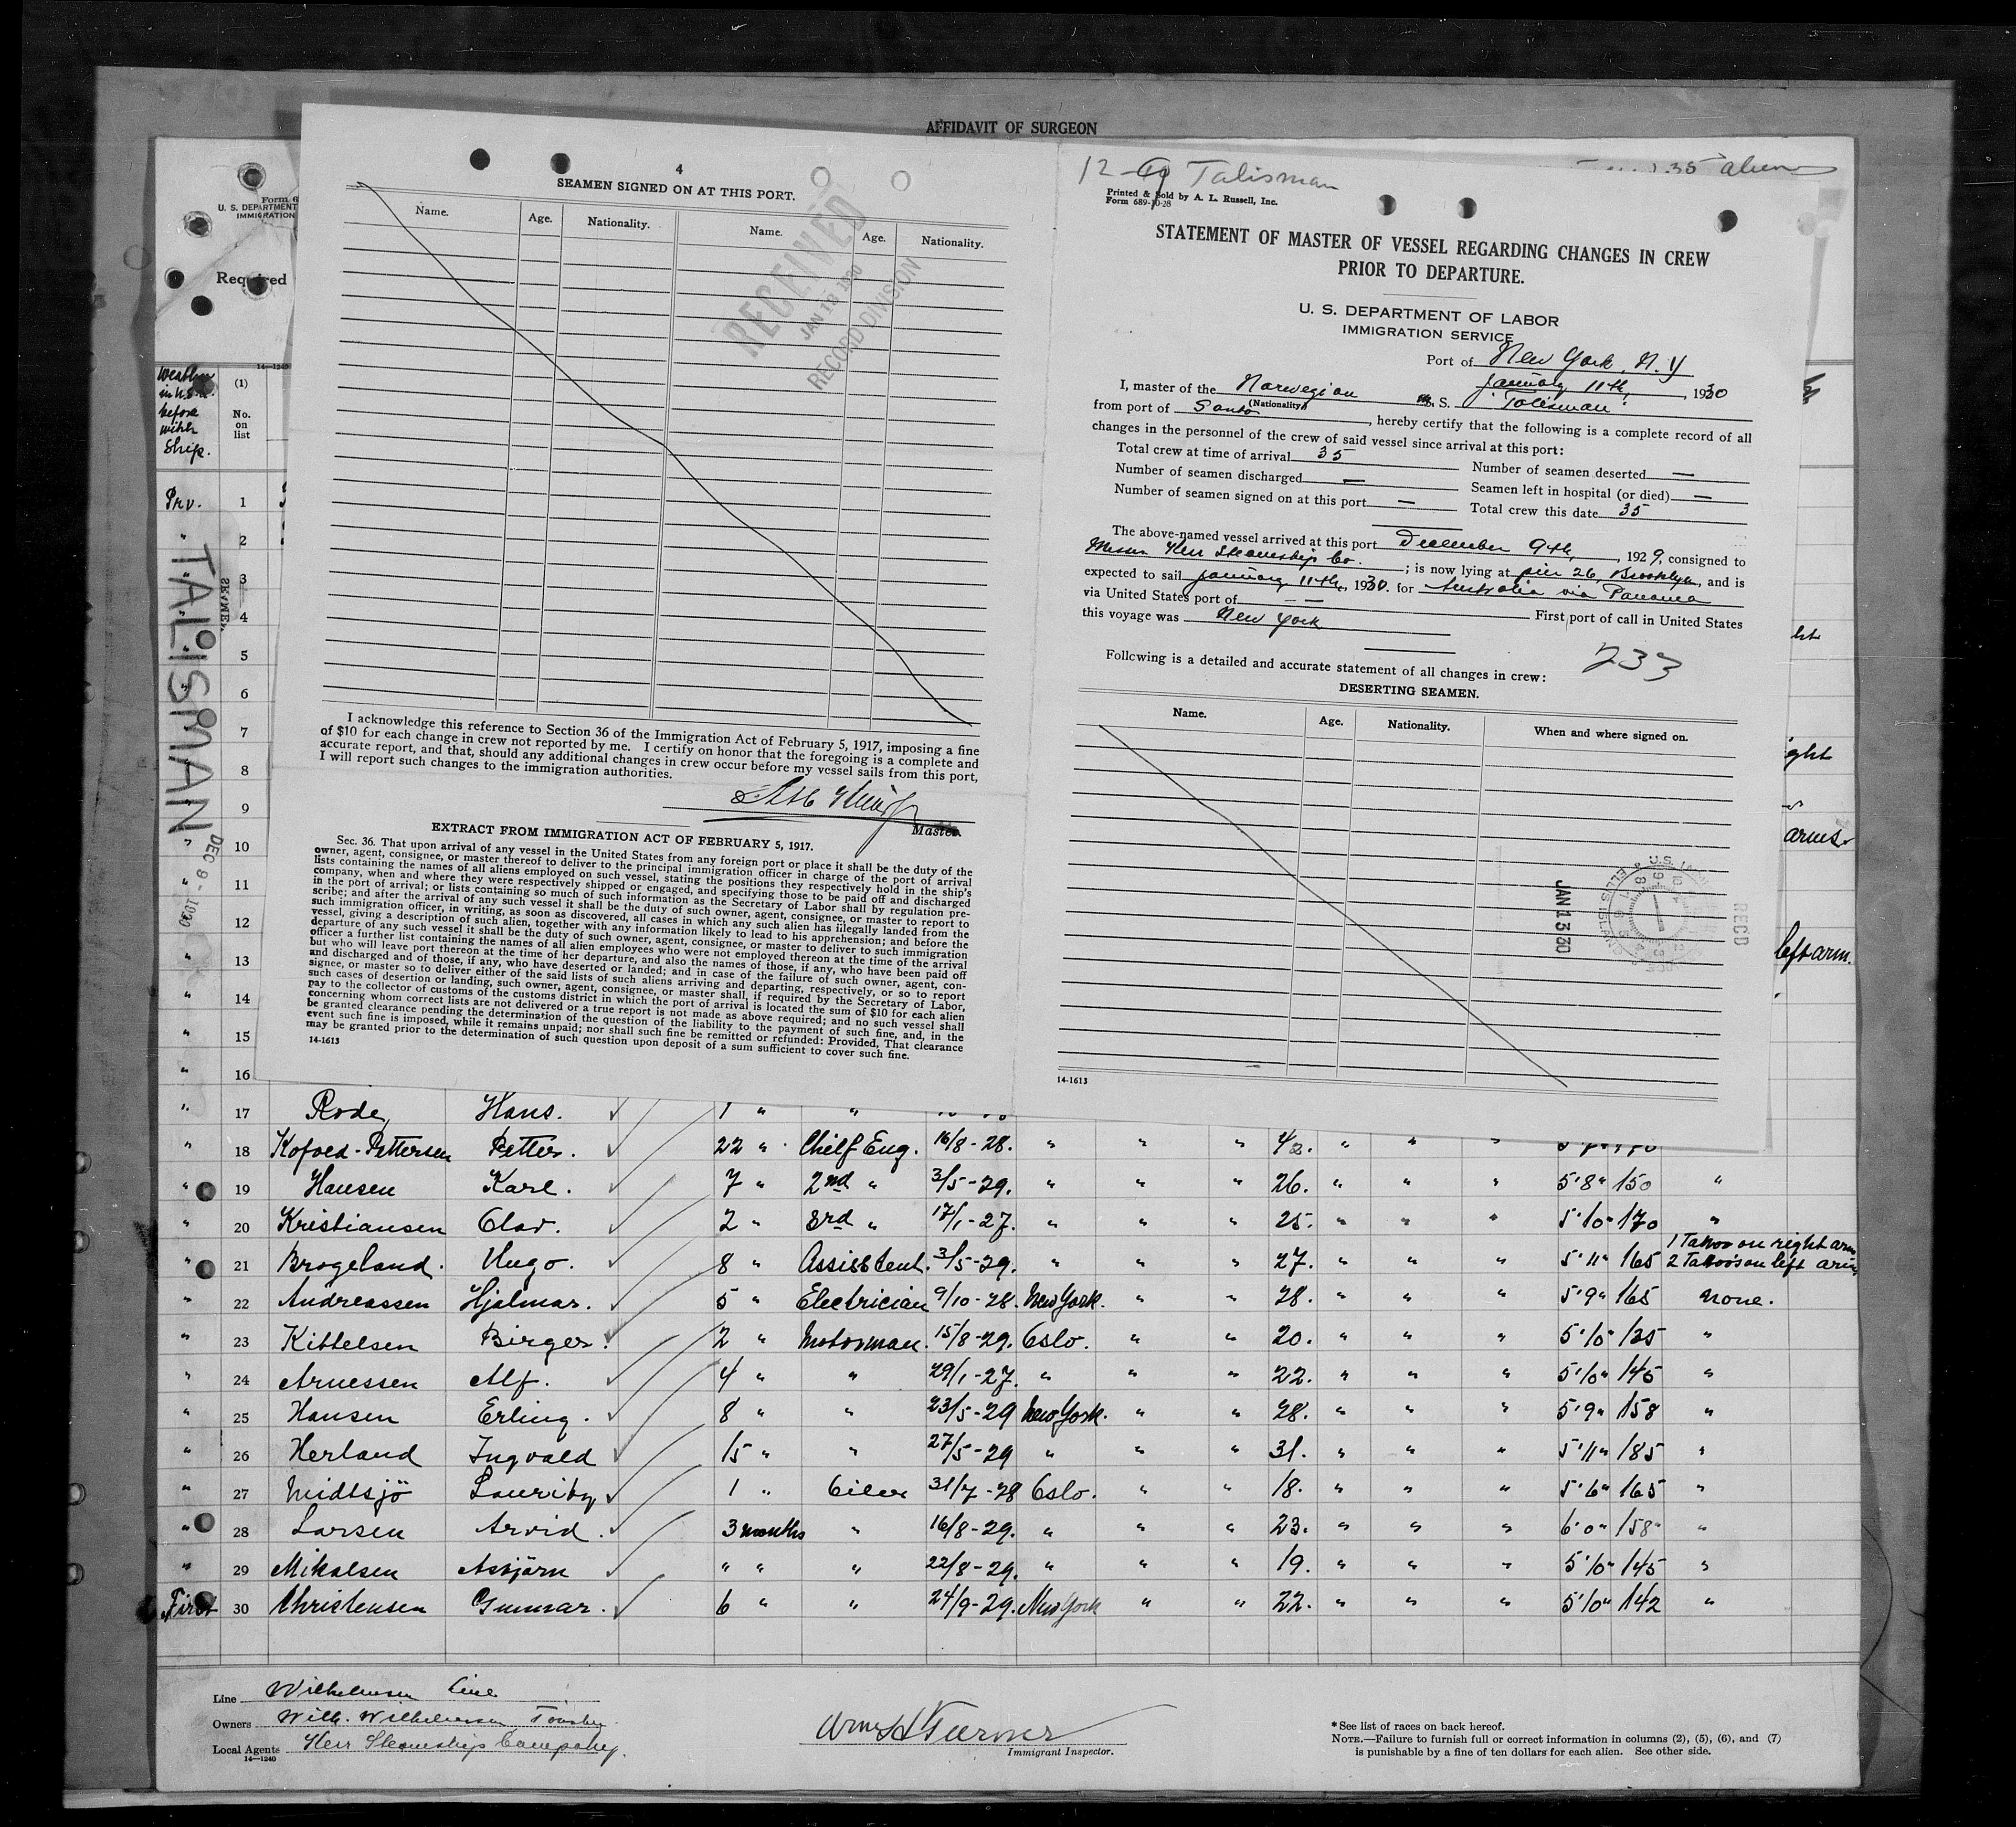 AFFIDAVIT OF SURGEON
Form 6
U. S. DEPARTMENT
IMMIGRATION
Required
14—1240
Weather
in U.S.
before
with
Ship.
(1)
No.
on
list
TALISMAN
DEC 9 - 1929
4
SEAMEN SIGNED ON AT THIS PORT.
Name. Age. Nationality. Name. Age. Nationality.
RECEIVED
JAN 13 1930
RECORD DIVISION
I acknowledge this reference to Section 36 of the Immigration Act of February 5, 1917, imposing a fine
of $10 for each change in crew not reported by me. I certify on honor that the foregoing is a complete and
accurate report, and that, should any additional changes in crew occur before my vessel sails from this port,
I will report such changes to the immigration authorities.
Master.
EXTRACT FROM IMMIGRATION ACT OF FEBRUARY 5, 1917.
Sec. 36. That upon arrival of any vessel in the United States from any foreign port or place it shall be the duty of the
owner, agent, consignee, or master thereof to deliver to the principal immigration officer in charge of the port of arrival
lists containing the names of all aliens employed on such vessel, stating the positions they respectively hold in the ship's
company, when and where they were respectively shipped or engaged, and specifying those to be paid off and discharged
in the port of arrival; or lists containing so much of such information as the Secretary of Labor shall by regulation pre-
scribe; and after the arrival of any such vessel it shall be the duty of such owner, agent, consignee, or master to report to
such immigration officer, in writing, as soon as discovered, all cases in which any such alien has illegally landed from the
vessel, giving a description of such alien, together with any information likely to lead to his apprehension; and before the
departure of any such vessel it shall be the duty of such owner, agent, consignee, or master to deliver to such immigration
officer a further list containing the names of all alien employees who were not employed thereon at the time of the arrival
but who will leave port thereon at the time of her departure, and also the names of those, if any, who have been paid off
and discharged and of those, if any, who have deserted or landed; and in case of the failure of such owner, agent, con-
signee, or master so to deliver either of the said lists of such aliens arriving and departing, respectively, or so to report
such cases of desertion or landing, such owner, agent, consignee, or master shall, if required by the Secretary of Labor,
pay to the collector of customs of the customs district in which the port of arrival is located the sum of $10 for each alien
concerning whom correct lists are not delivered or a true report is not made as above required; and no such vessel shall
be granted clearance pending the determination of the question of the liability to the payment of such fine, and, in the
event such fine is imposed, while it remains unpaid; nor shall such fine be remitted or refunded: Provided, That clearance
may be granted prior to the determination of such question upon deposit of a sum sufficient to cover such fine.
14-1613
12-9 Talisman
35 aliens
Printed & Sold by A. L. Russell, Inc.
Form 689-10-28
STATEMENT OF MASTER OF VESSEL REGARDING CHANGES IN CREW
PRIOR TO DEPARTURE.
U. S. DEPARTMENT OF LABOR
IMMIGRATION SERVICE
Port of New York, N.Y
January 11th, 1930
I, master of the Norwegian M. S. "Talisman"
(Nationality)
from port of Santos, hereby certify that the following is a complete record of all
changes in the personnel of the crew of said vessel since arrival at this port:
Total crew at time of arrival 35 Number of seamen deserted —
Number of seamen discharged — Seamen left in hospital (or died) —
Number of seamen signed on at this port — Total crew this date 35
The above-named vessel arrived at this port December 9th, 1929, consigned to
Messrs Kerr Steamship Co. ; is now lying at pier 26, Brooklyn, and is
expected to sail January 11th, 1930. for Australia via Panama
via United States port of — — First port of call in United States
this voyage was New York
233
Following is a detailed and accurate statement of all changes in crew:
DESERTING SEAMEN.
Name. Age. Nationality. When and where signed on.
JAN 13 30
RECD
14-1613
arms.
left arm.
Prv. 1
" 2
" 3
" 4
" 5
" 6
" 7
" 8
" 9
" 10
" 11
" 12
" 13
" 14
" 15
" 16
" 17 Rode, Hans. 1 " "
" 18 Kofoed-Pettersen Petter. 22 " Chief Eng. 16/8-28. " " " 42. " " "
" 19 Hansen Karl. 7 " 2nd " 3/5-29. " " " 26. " " " 5'8" 150 "
" 20 Kristiansen Olav. 2 " 3rd " 17/1-27. " " " 25. " " " 5'10" 170 "
" 21 Brogeland. Hugo. 8 " Assistent. 3/5-29. " " " 27. " " " 5'11" 165 1 Tattoo on right arm 2 Tattoo's on left arm
" 22 Andreassen Hjalmar. 5 " Electrician 9/10-28. New York. " " 28. " " " 5'9" 165 none.
" 23 Kittelsen Birger. 2 " Motorman. 15/8-29. Oslo. " " 20. " " " 5'10" 135 "
" 24 Arnessen Alf. 4 " " 29/1-27. " " " 22. " " " 5'10" 145 "
" 25 Hansen Erling. 8 " " 23/5-29 New York. " " 28. " " " 5'9" 158 "
" 26 Herland Ingvald 15 " " 27/5-29 " " " 31. " " " 5'11" 185 "
" 27 Midtsjö Lauritz 1 " Oiler 31/7-28 Oslo. " " 18. " " " 5'6" 165 "
" 28 Larsen Arvid. 3 months " 16/8-29. " " " 23. " " " 6'0" 158 "
" 29 Mikalsen Asbjörn " " " 22/8-29. " " " 19. " " " 5'10" 145 "
First 30 Christensen Gunnar. 6 " " 24/9-29. New York " " 22. " " " 5'10" 142 "
Line Wilhelmsen Line
Owners Wilh. Wilhelmsen Tönsberg
Local Agents Kerr Steamship Company.
14—1240
Turner
Immigrant Inspector.
* See list of races on back hereof.
NOTE.—Failure to furnish full or correct information in columns (2), (5), (6), and (7)
is punishable by a fine of ten dollars for each alien. See other side.